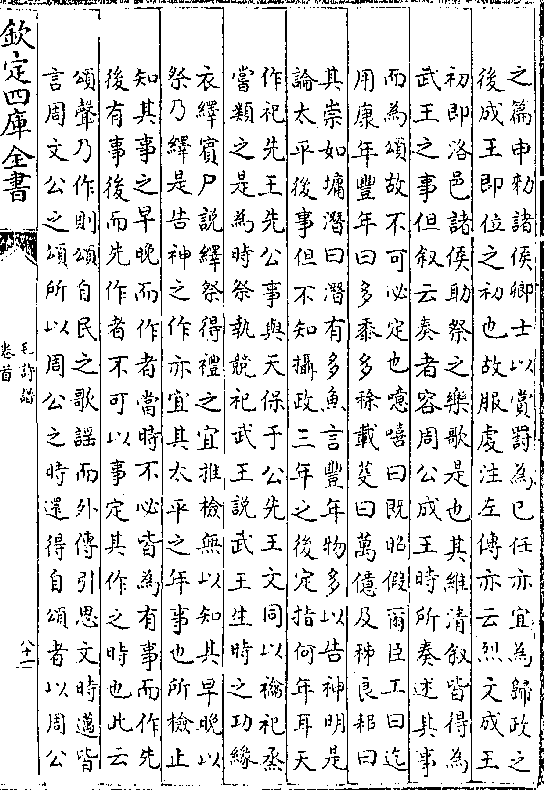 之篇申勑諸侯卿士以賞罰為已任亦宜為歸政之
後成王即位之初也故服虔注左傳亦云烈文成王
初即洛邑諸侯助祭之樂歌是也其維清叙皆得為
武王之事但叙云奏者容周公成王時所奏述其事
而為頌故不可必定也噫嘻曰既昭假爾臣工曰迄
用康年豐年曰多黍多稌載芟曰萬億及秭良耜曰
其崇如墉潛曰潛有多魚言豐年物多以告神明是
論太平後事但不知攝政三年之後定指何年耳天
作祀先王先公事與天保于公先王文同以禴祀烝
嘗類之是為時祭執競祀武王説武王生時之功緣
衣繹賓尸説繹祭得禮之宜推檢無以知其早晚以
祭乃繹是告神之作亦宜其太平之年事也所檢止
知其事之早晚而作者當時不必皆為有事而作先
後有事後而先作者不可以事定其作之時也此云
頌聲乃作則頌自民之歌謡而外傳引思文時邁皆
言周文公之頌所以周公之時還得自頌者以周公
欽定四庫全書
毛詩譜
卷首
八十一